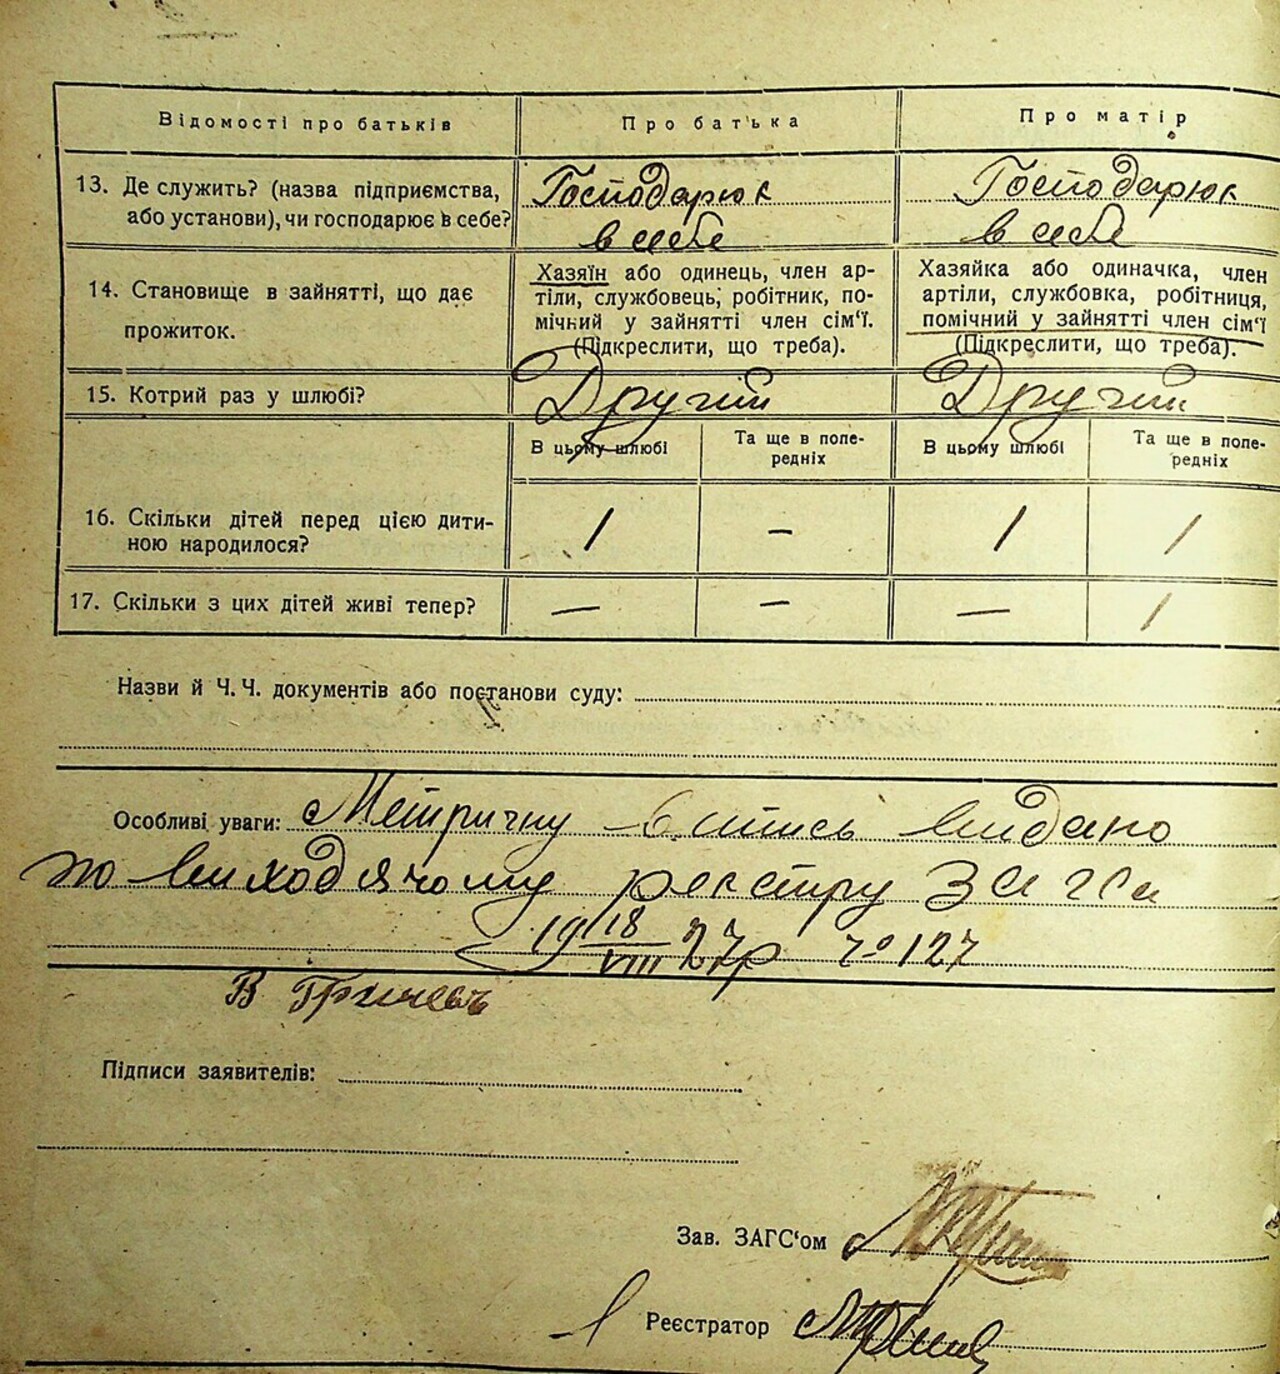 Відомості про батьків
Про батька
Про матір
13. Де служить? (назва підприємства,
або установи), чи господарює в себе?
Господарюк
в себе
Господарюк
в себе
14. Становище в зайнятті, що дає
прожиток.
Хазяїн або одинець, член ар-
тіли, службовець, робітник, по-
мічний у зайнятті член сім'ї.
(Підкреслити, що треба).
Хазяйка або одиначка, член
артіли, службовка, робітниця,
помічний у зайнятті член сім'ї
(Підкреслити, що треба).
15. Котрий раз у шлюбі?
Другий
Другий
В цьому шлюбі
Та ще в попе-
редніх
В цьому шлюбі
Та ще в попе-
редніх
16. Скільки дітей перед цією дити-
ною народилося?
1 – 1 1
17. Скільки з цих дітей живі тепер?
— – — 1
Назви й Ч. Ч. документів або постанови суду:
Особливі уваги: Метричну випись видано
по виходячому реєстру Загса
19 18/VIII 27р № 127
В
Підписи заявителів:
Зав. ЗАГС'ом
Реєстратор